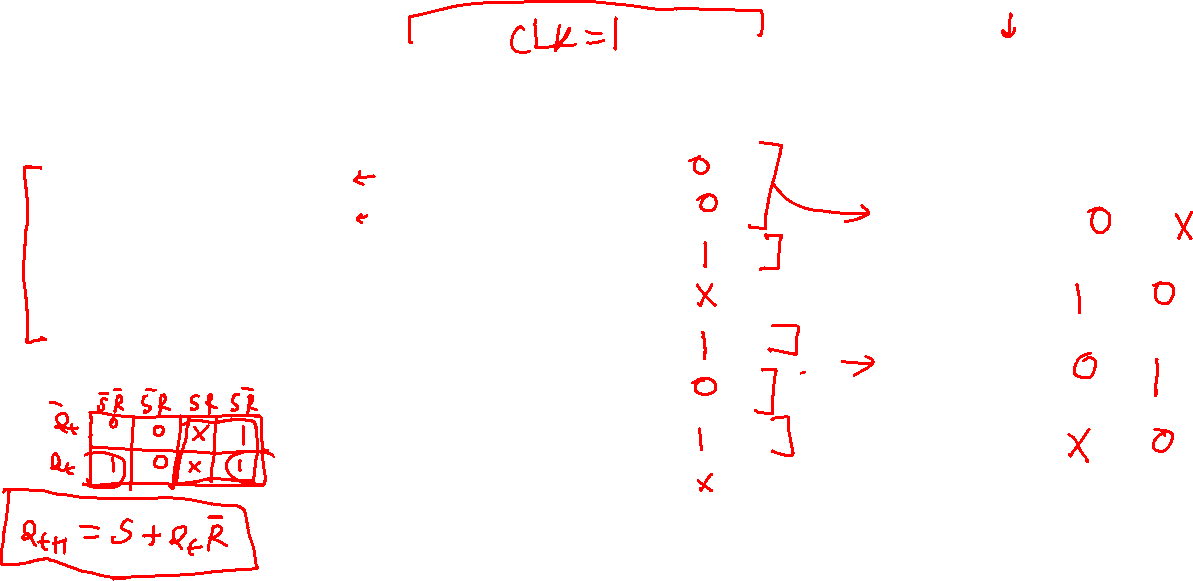 CLK=1
0
0
0 X
1
X
1 0
1
0 1
0
1
X 0
X
S̅R̅ S̅R SR SR̅
Q̅t 0 0 X 1
Qt 1 0 X 1
Qt+1 = S + QtR̅